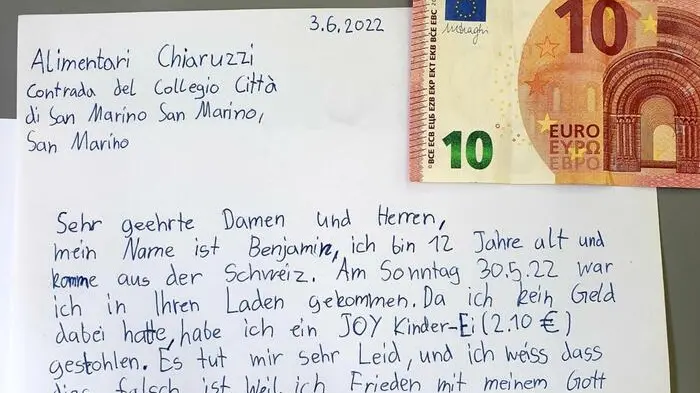 3.6.2022
Alimentari Chiaruzzi
Contrada del Collegio Città
di San Marino San Marino,
San Marino
Sehr geehrte Damen und Herren,
mein Name ist Benjamin, ich bin 12 Jahre alt und
komme aus der Schweiz. Am Sonntag 30.5.22 war
ich in Ihren Laden gekommen. Da ich kein Geld
dabei hatte, habe ich ein JOY Kinder-Ei (2.10 €)
gestohlen. Es tut mir sehr Leid, und ich weiss dass
dies falsch ist. Weil ich Frieden mit meinem Gott
10
10
EURO
ΕΥΡΩ
ЕВРО
©BCE ECB ЕЦБ EZB EKP EKT EKB BCE EBC